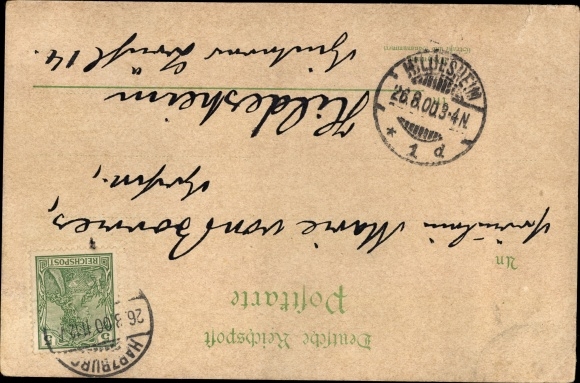 Deutsche Reichspost
Postkarte
An
Fräulein Marie von Borries,
Hildesheim
14.
REICHSPOST
5 5
HARZBURG
26.8.00.11-12
HILDESHEIM
26.8.00.3-4N.
* 1 d